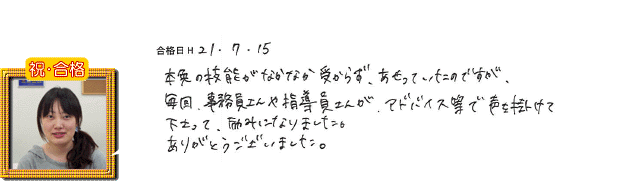 祝・合格
合格日 H 21・7・15
本免の技能がなかなか受からず、あせっていたのですが、
毎回、事務員さんや指導員さんが、アドバイス等で声を掛けて
下さって、励みになりました。
ありがとうございました。